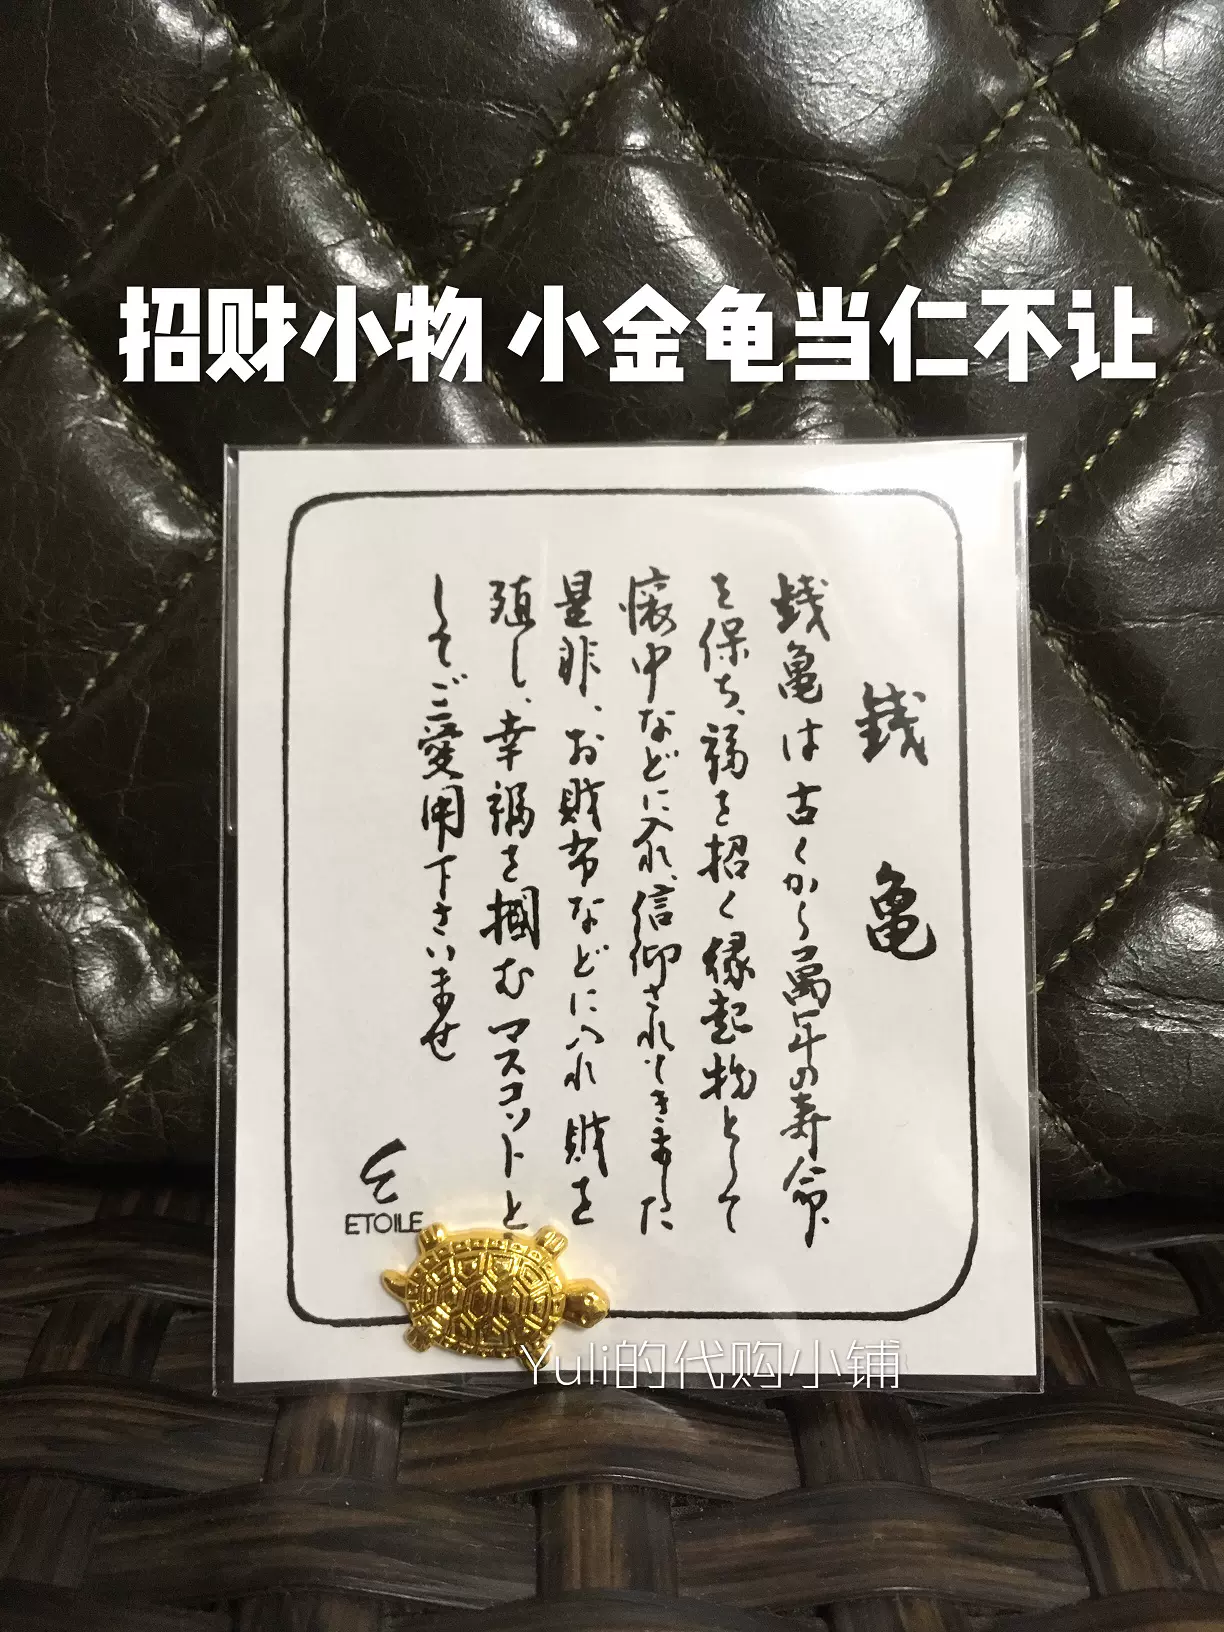 招财小物 小金龟当仁不让
銭亀
銭亀は古くから萬年の寿命
を保ち、福を招く縁起物として
懐中などに入れ、信仰されてきました
是非、お財布などに入れ財を
殖し、幸福を掴むマスコットと
してご愛用下さいませ
ETOILE
Yuli的代购小铺